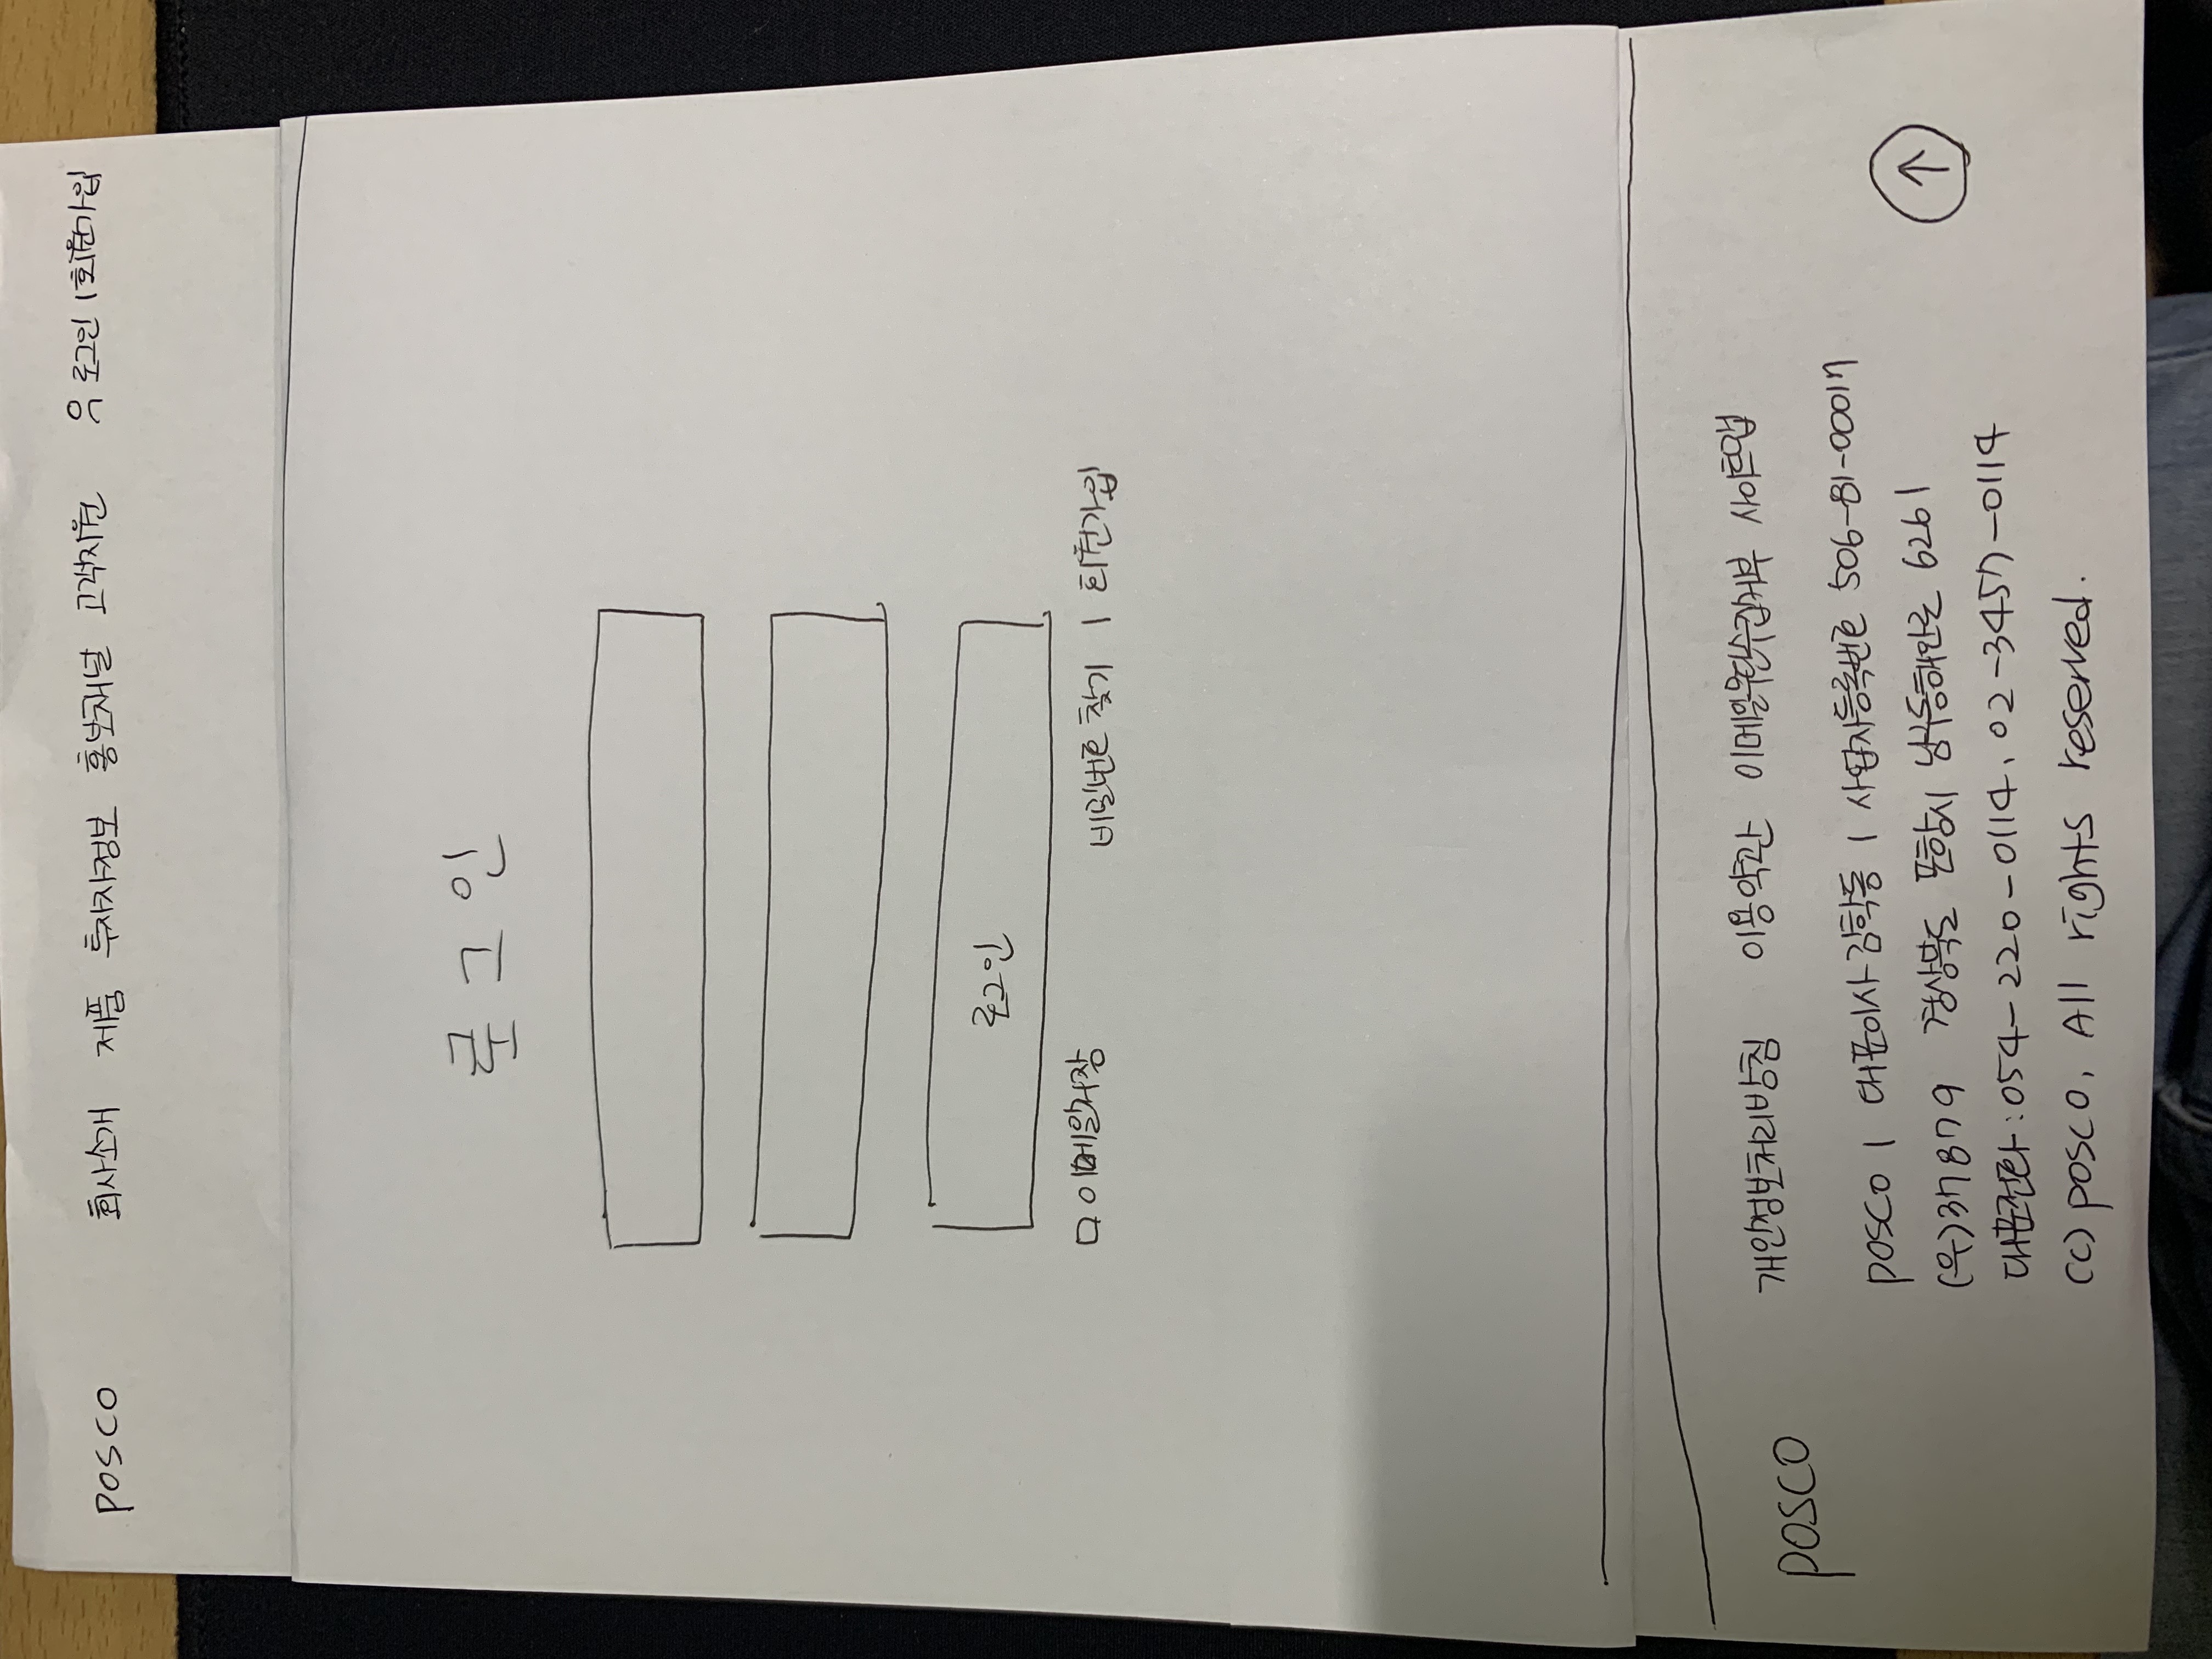 POSCO 회사소개 제품 투자자정보 홍보채널 고객지원 로그인 | 회원가입
로그인
로그인
이메일저장 비밀번호 찾기 | 회원가입
POSCO
개인정보처리방침 이용약관 이메일무단수집거부 사이트맵
POSCO | 대표이사 김학동 | 사업자등록번호 506-81-00017
(우)37879 경상북도 포항시 남구동해안로 6261
대표전화 : 054-220-0114, 02-3457-0114
(C) POSCO, All rights reserved.